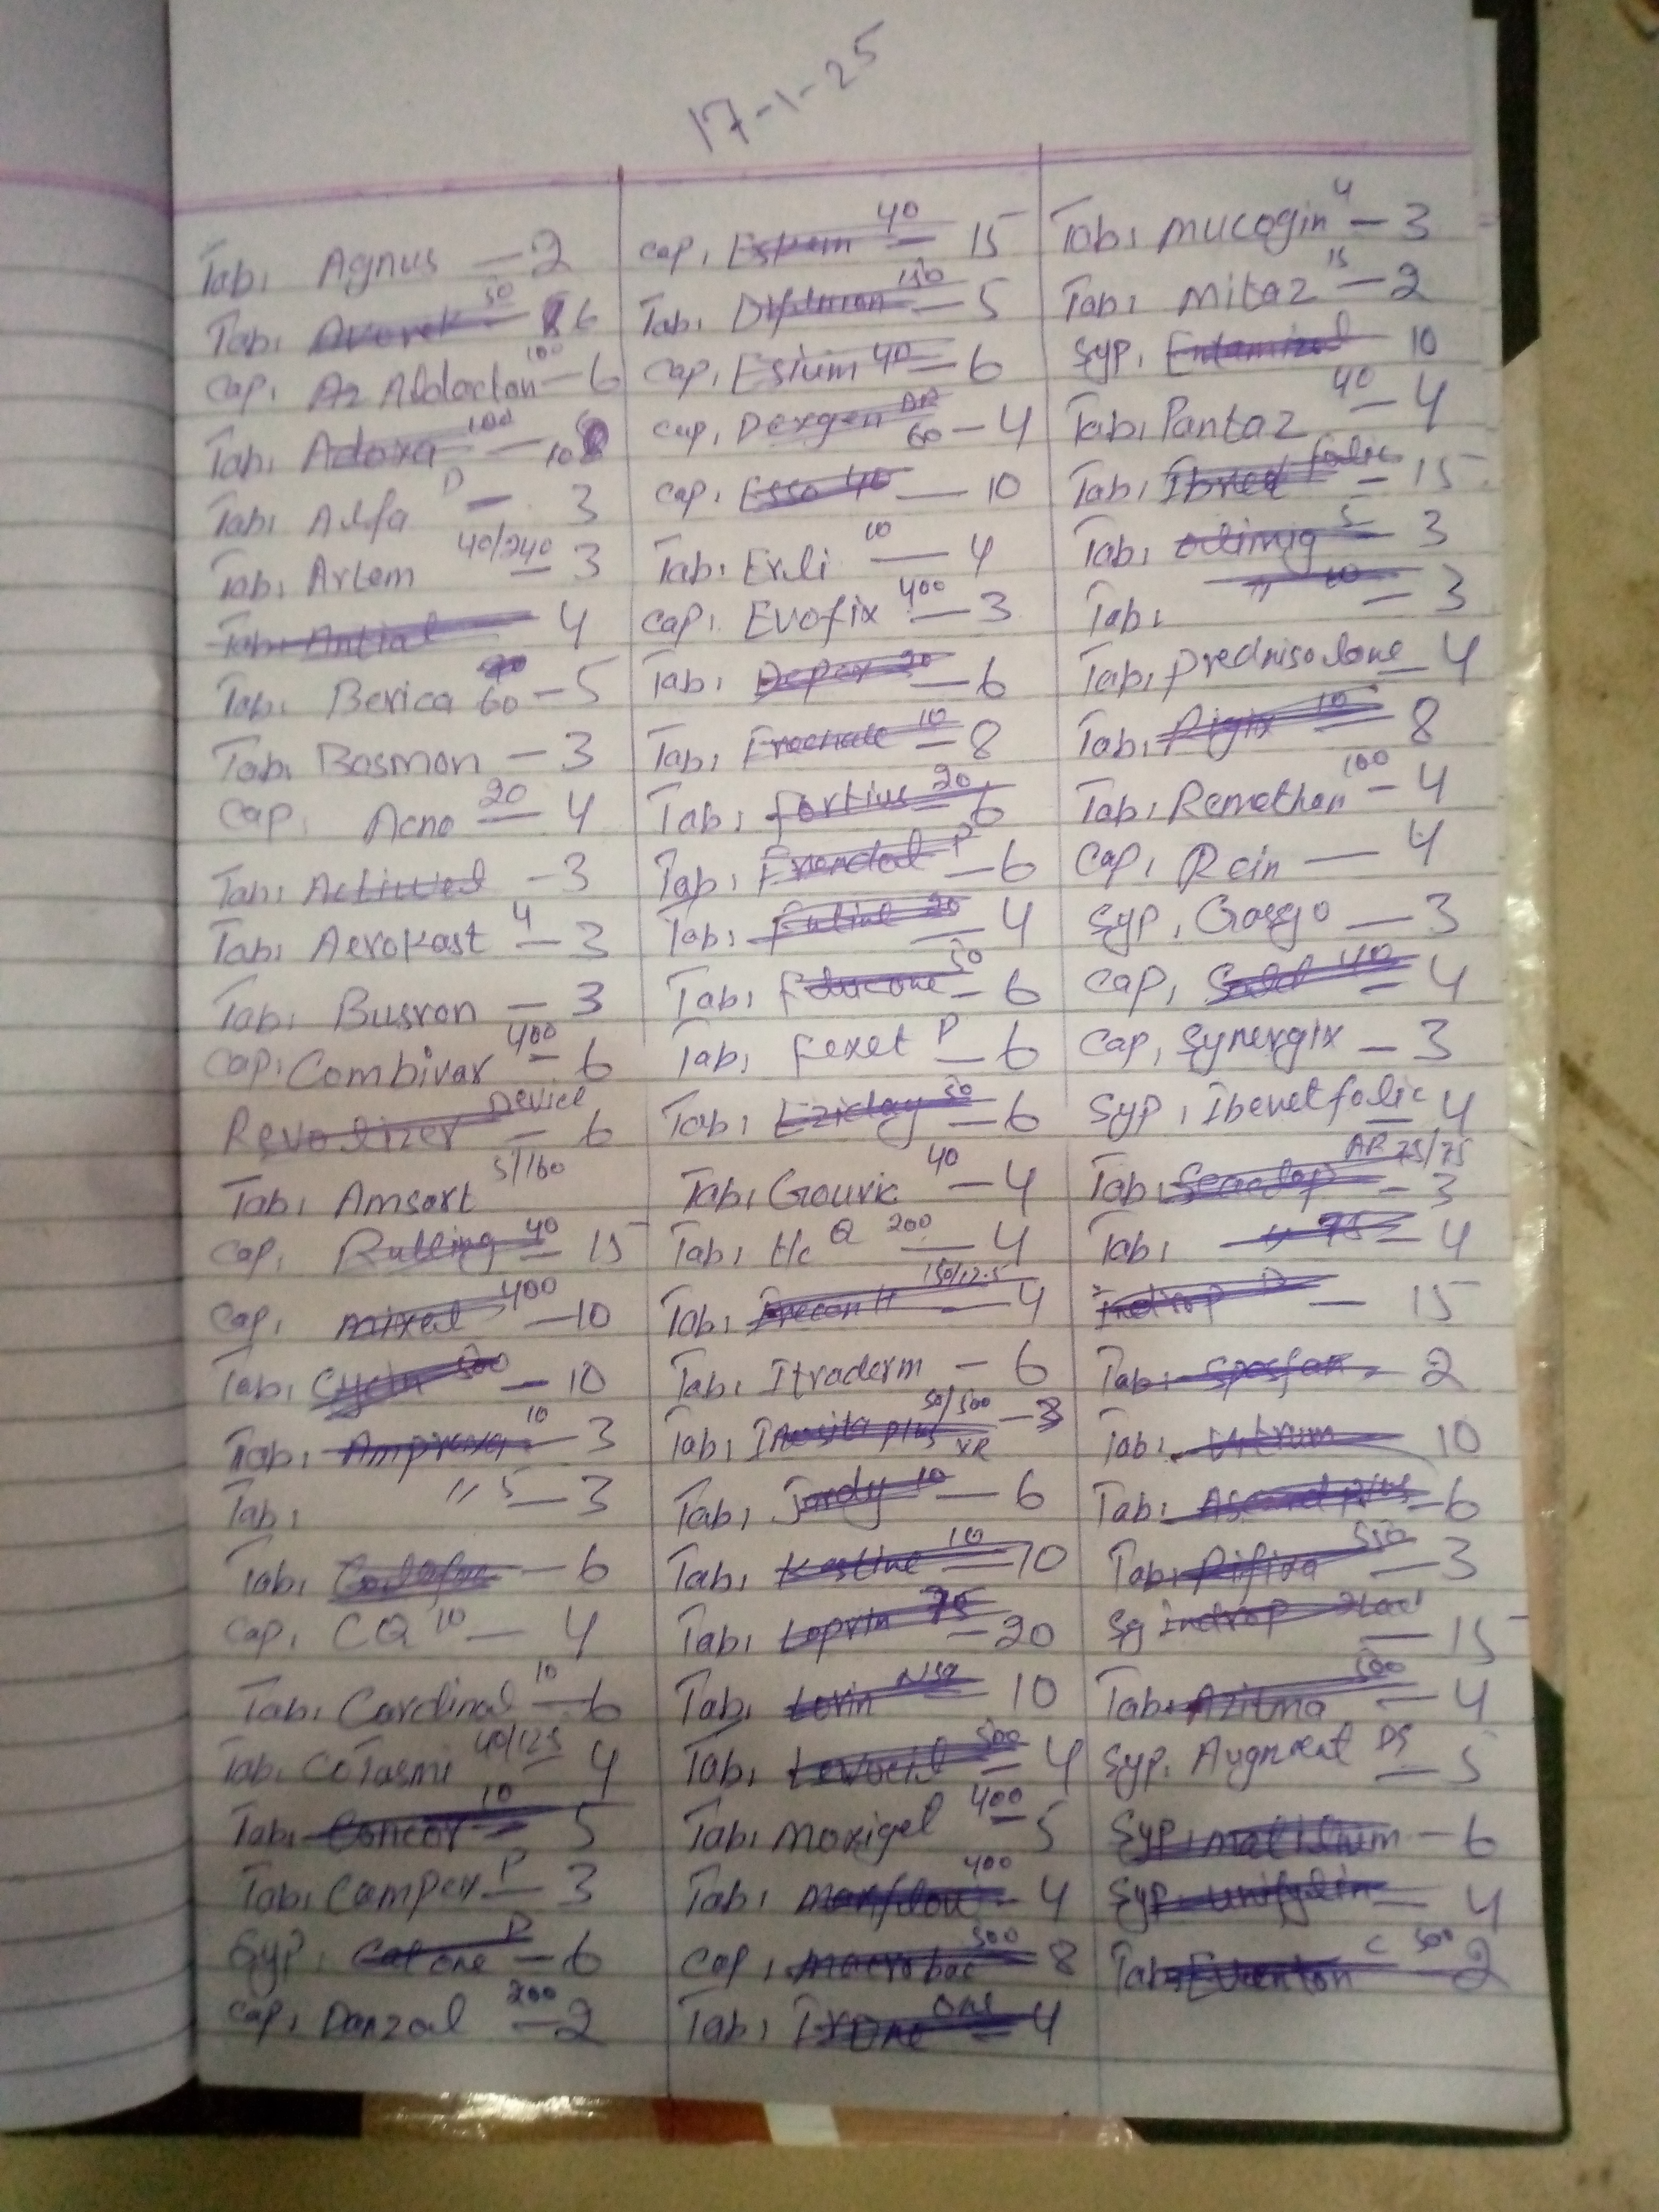 17-1-25
Tab, Agnus — 2
Tab, 50 6
Cap, Az Aldactan 100 — 6
Tab, Adoxa 100 — 10
Tab, Alfa D — 3
Tab, Artem 40/240 — 3
Tab, Antial 4
Tab, Berica 60 — 5
Tab, Bosmon — 3
Cap, Acno 20 — 4
Tab, — 3
Tab, Aerokast 4 — 3
Tab, Busron — 3
Cap, Combivar 400 — 6
Revolizer Device — 6
Tab, Amsart 5/160
Cap, Rulling 40 — 15
Cap, mixel 400 — 10
Tab, Cycin 500 — 10
Tab, Amprexa 10 — 3
Tab, " 5 — 3
Tab, — 6
Cap, CQ 10 — 4
Tab, Cardinal 10 — 6
Tab, CoTasmi 40/125 — 4
Tab, Concor 10 — 5
Tab, Camper P — 3
Syp, Calone P — 6
Cap, Danzol 200 — 2
Cap, 40 — 15
Tab, 150 — 5
Cap, Esium 40 — 6
Cap, Dexgen DR 60 — 4
Cap, Esso 40 — 10
Tab, Exli 10 — 4
Cap, Evofix 400 — 3
Tab, Depex 20 — 6
Tab, 10 — 8
Tab, fortius 20 — 6
Tab, P — 6
Tab, 20 — 4
Tab, 50 — 6
Tab, fexet P — 6
Tab, Eziday 50 — 6
Tab, Gouric 40 — 4
Tab, Hc Q 200 — 4
Tab, 150/12.5 — 4
Tab, Itraderm — 6
Tab, Inosita plus 50/500 XR — 3
Tab, Jardy 10 — 6
Tab, Kestine 10 — 10
Tab, Loprin 75 — 20
Tab, Lorin NSA 10
Tab, 500 — 4
Tab, Moxigel 400 — 5
Tab, Maxflow 400 — 4
Cap, Macrobac 500 8
Tab, 4
Tab, mucogin 4 — 3
Tab, mitaz 15 — 2
Syp, Entamizol 10
Tab, Pantaz 40 — 4
Tab, Ibret folic — 15
Tab, 5 — 3
Tab, " 10 — 3
Tab, Prednisolone — 4
Tab, Rigix 10 — 8
Tab, Remethan 100 — 4
Cap, Rcin — 4
Syp, Gasgo — 3
Cap, 40 — 4
Cap, Synergix — 3
Syp, Iberetfolic — 4
Tab, AP 75/75 — 3
Tab, " 75 — 4
Indrop D — 15
Tab, Spasfon — 2
Tab, 10
Tab, Ascard plus — 6
Tab, Rifixa 550 — 3
Indrop — 15
Tab, Azitma 500 — 4
Syp, DS — 5
Syp, motilium — 6
Syp, 4
Tab, C 500 2